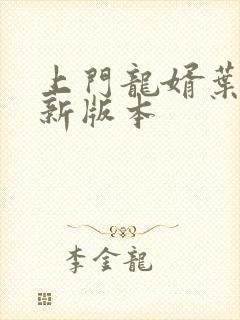 上門龍婿葉
新版本
李金龍